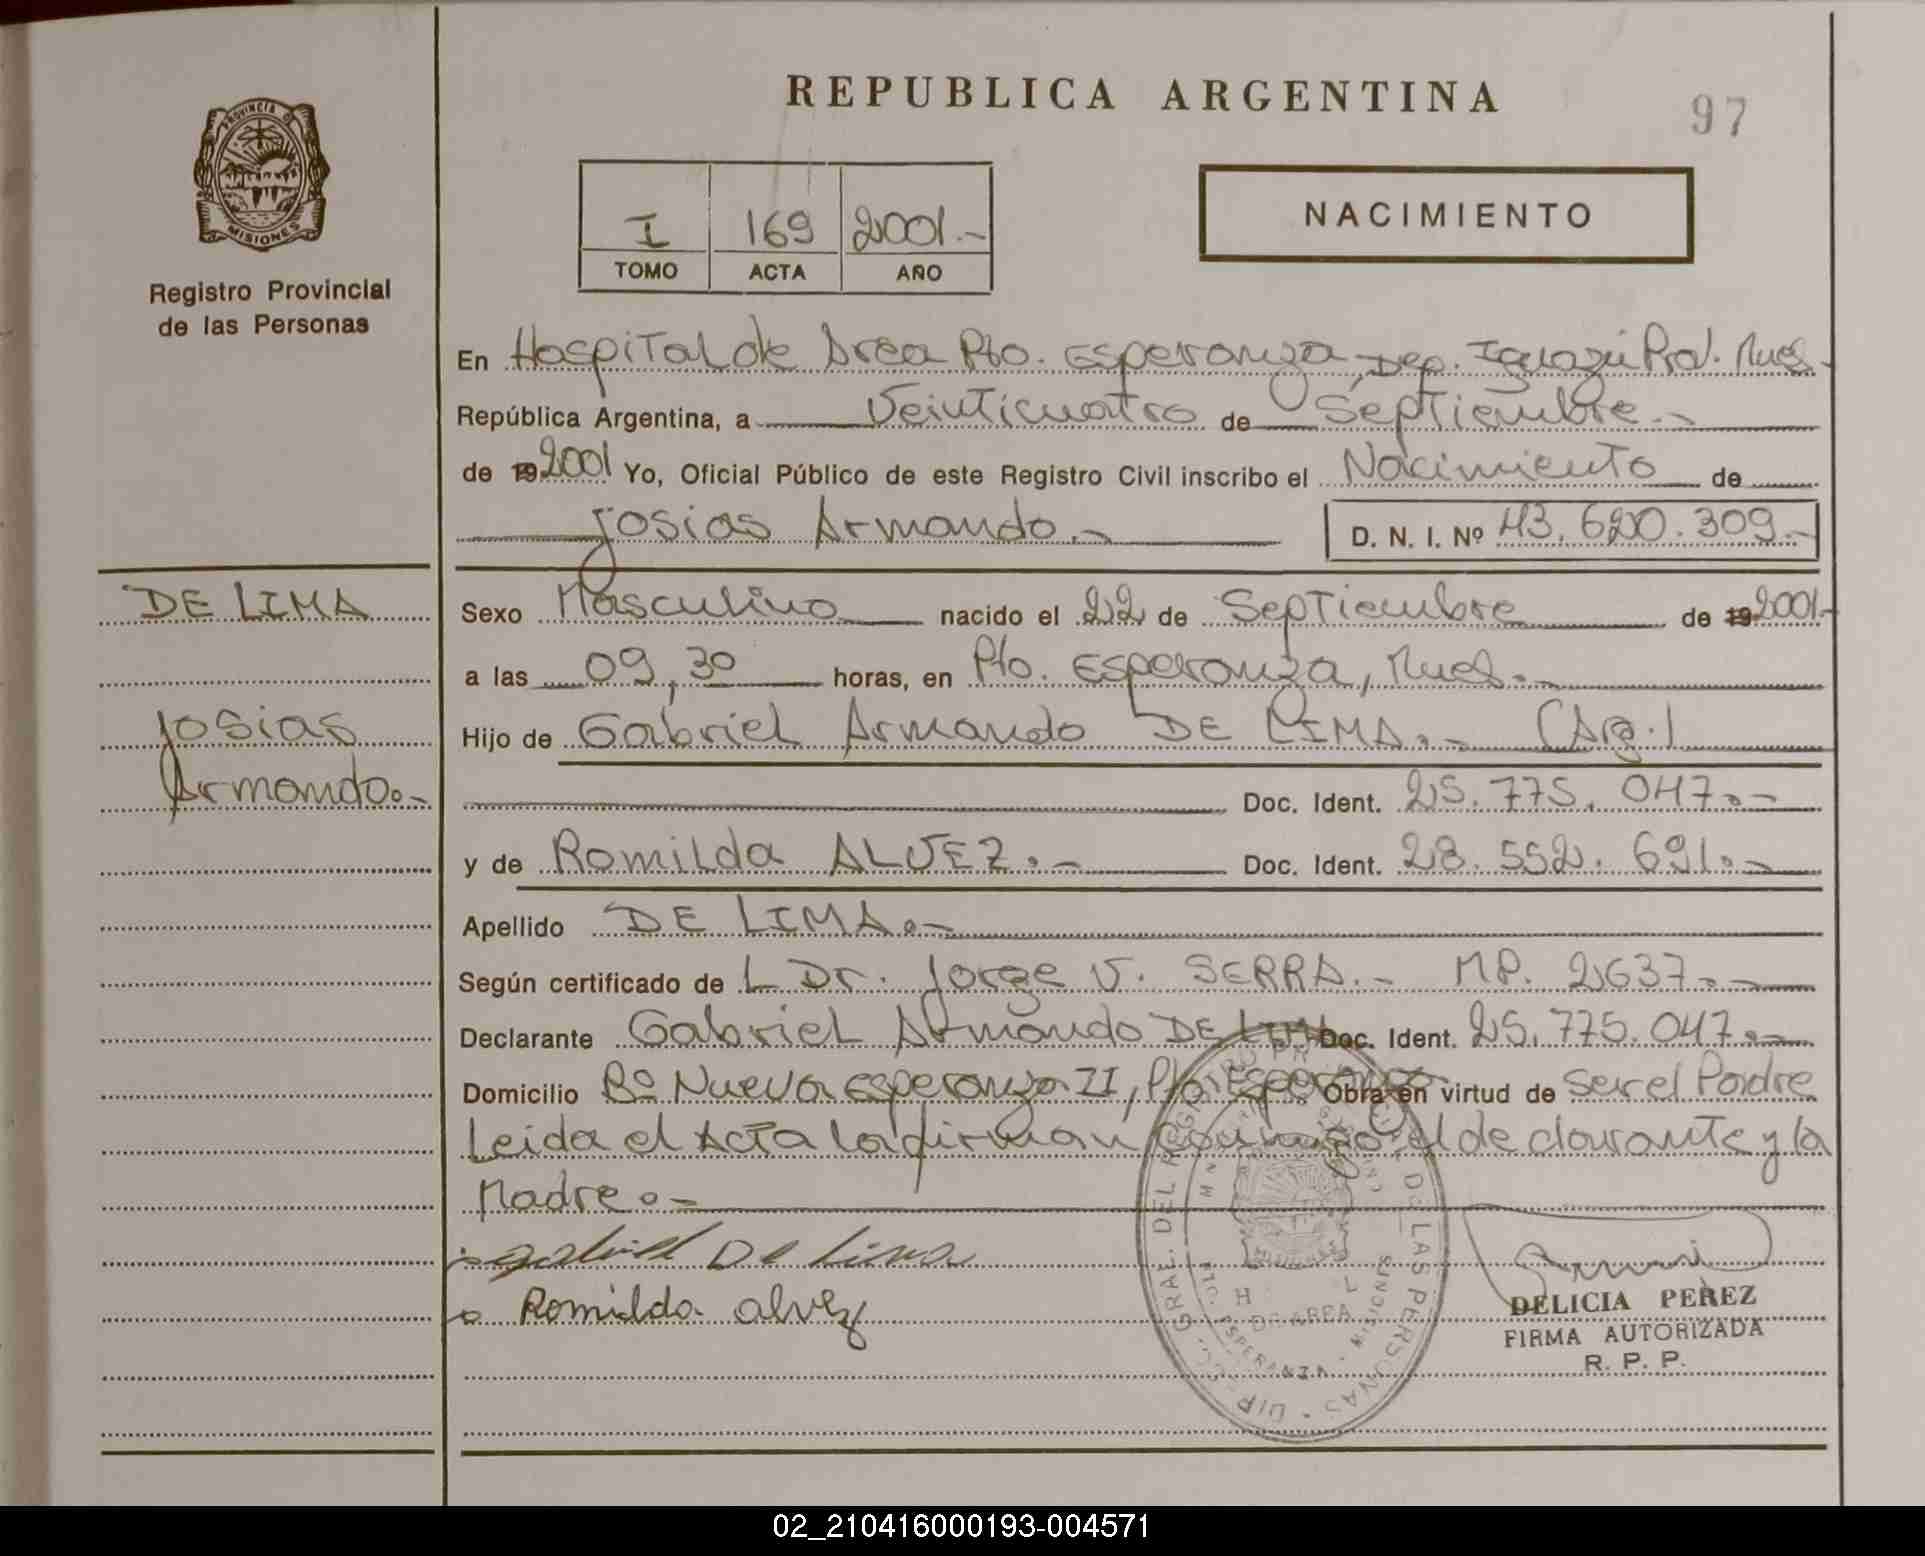 REPUBLICA ARGENTINA
97
PROVINCIA DE
MISIONES
Registro Provincial
de las Personas
I 169 2001.-
TOMO ACTA AÑO
NACIMIENTO
En Hospital de Area Pto. Esperanza, Dep. Iguazú Prov. Mnes.-
República Argentina, a Veinticuatro de Septiembre.-
de 19 2001 Yo, Oficial Público de este Registro Civil inscribo el Nacimiento de
Josias Armando.- D. N. I. Nº 43.620.309.-
DE LIMA
Josias
Armando.-
Sexo Masculino nacido el 22 de Septiembre de 19 2001.-
a las 09,30 horas, en Pto. Esperanza, Mnes.-
Hijo de Gabriel Armando DE LIMA.- (Arg.)
Doc. Ident. 25.775.047.-
y de Romilda ALVEZ.- Doc. Ident. 28.552.691.-
Apellido DE LIMA.-
Según certificado de L Dr. Jorge V. SERRA.- MP. 2637.-
Declarante Gabriel Armando DE LIMA Doc. Ident. 25.775.047.-
Domicilio Bº Nueva Esperanza II, Pto. Esperanza Obra en virtud de Ser el Padre
Leida el Acta la firman conmigo el declarante y la
Madre.-
gabriel De Lima
Romilda alvez
DELICIA PEREZ
FIRMA AUTORIZADA
R. P. P.
GRAL. DEL REGISTRO DE LAS PERSONAS
DE AREA
ESPERANZA - MISIONES
02_210416000193-004571